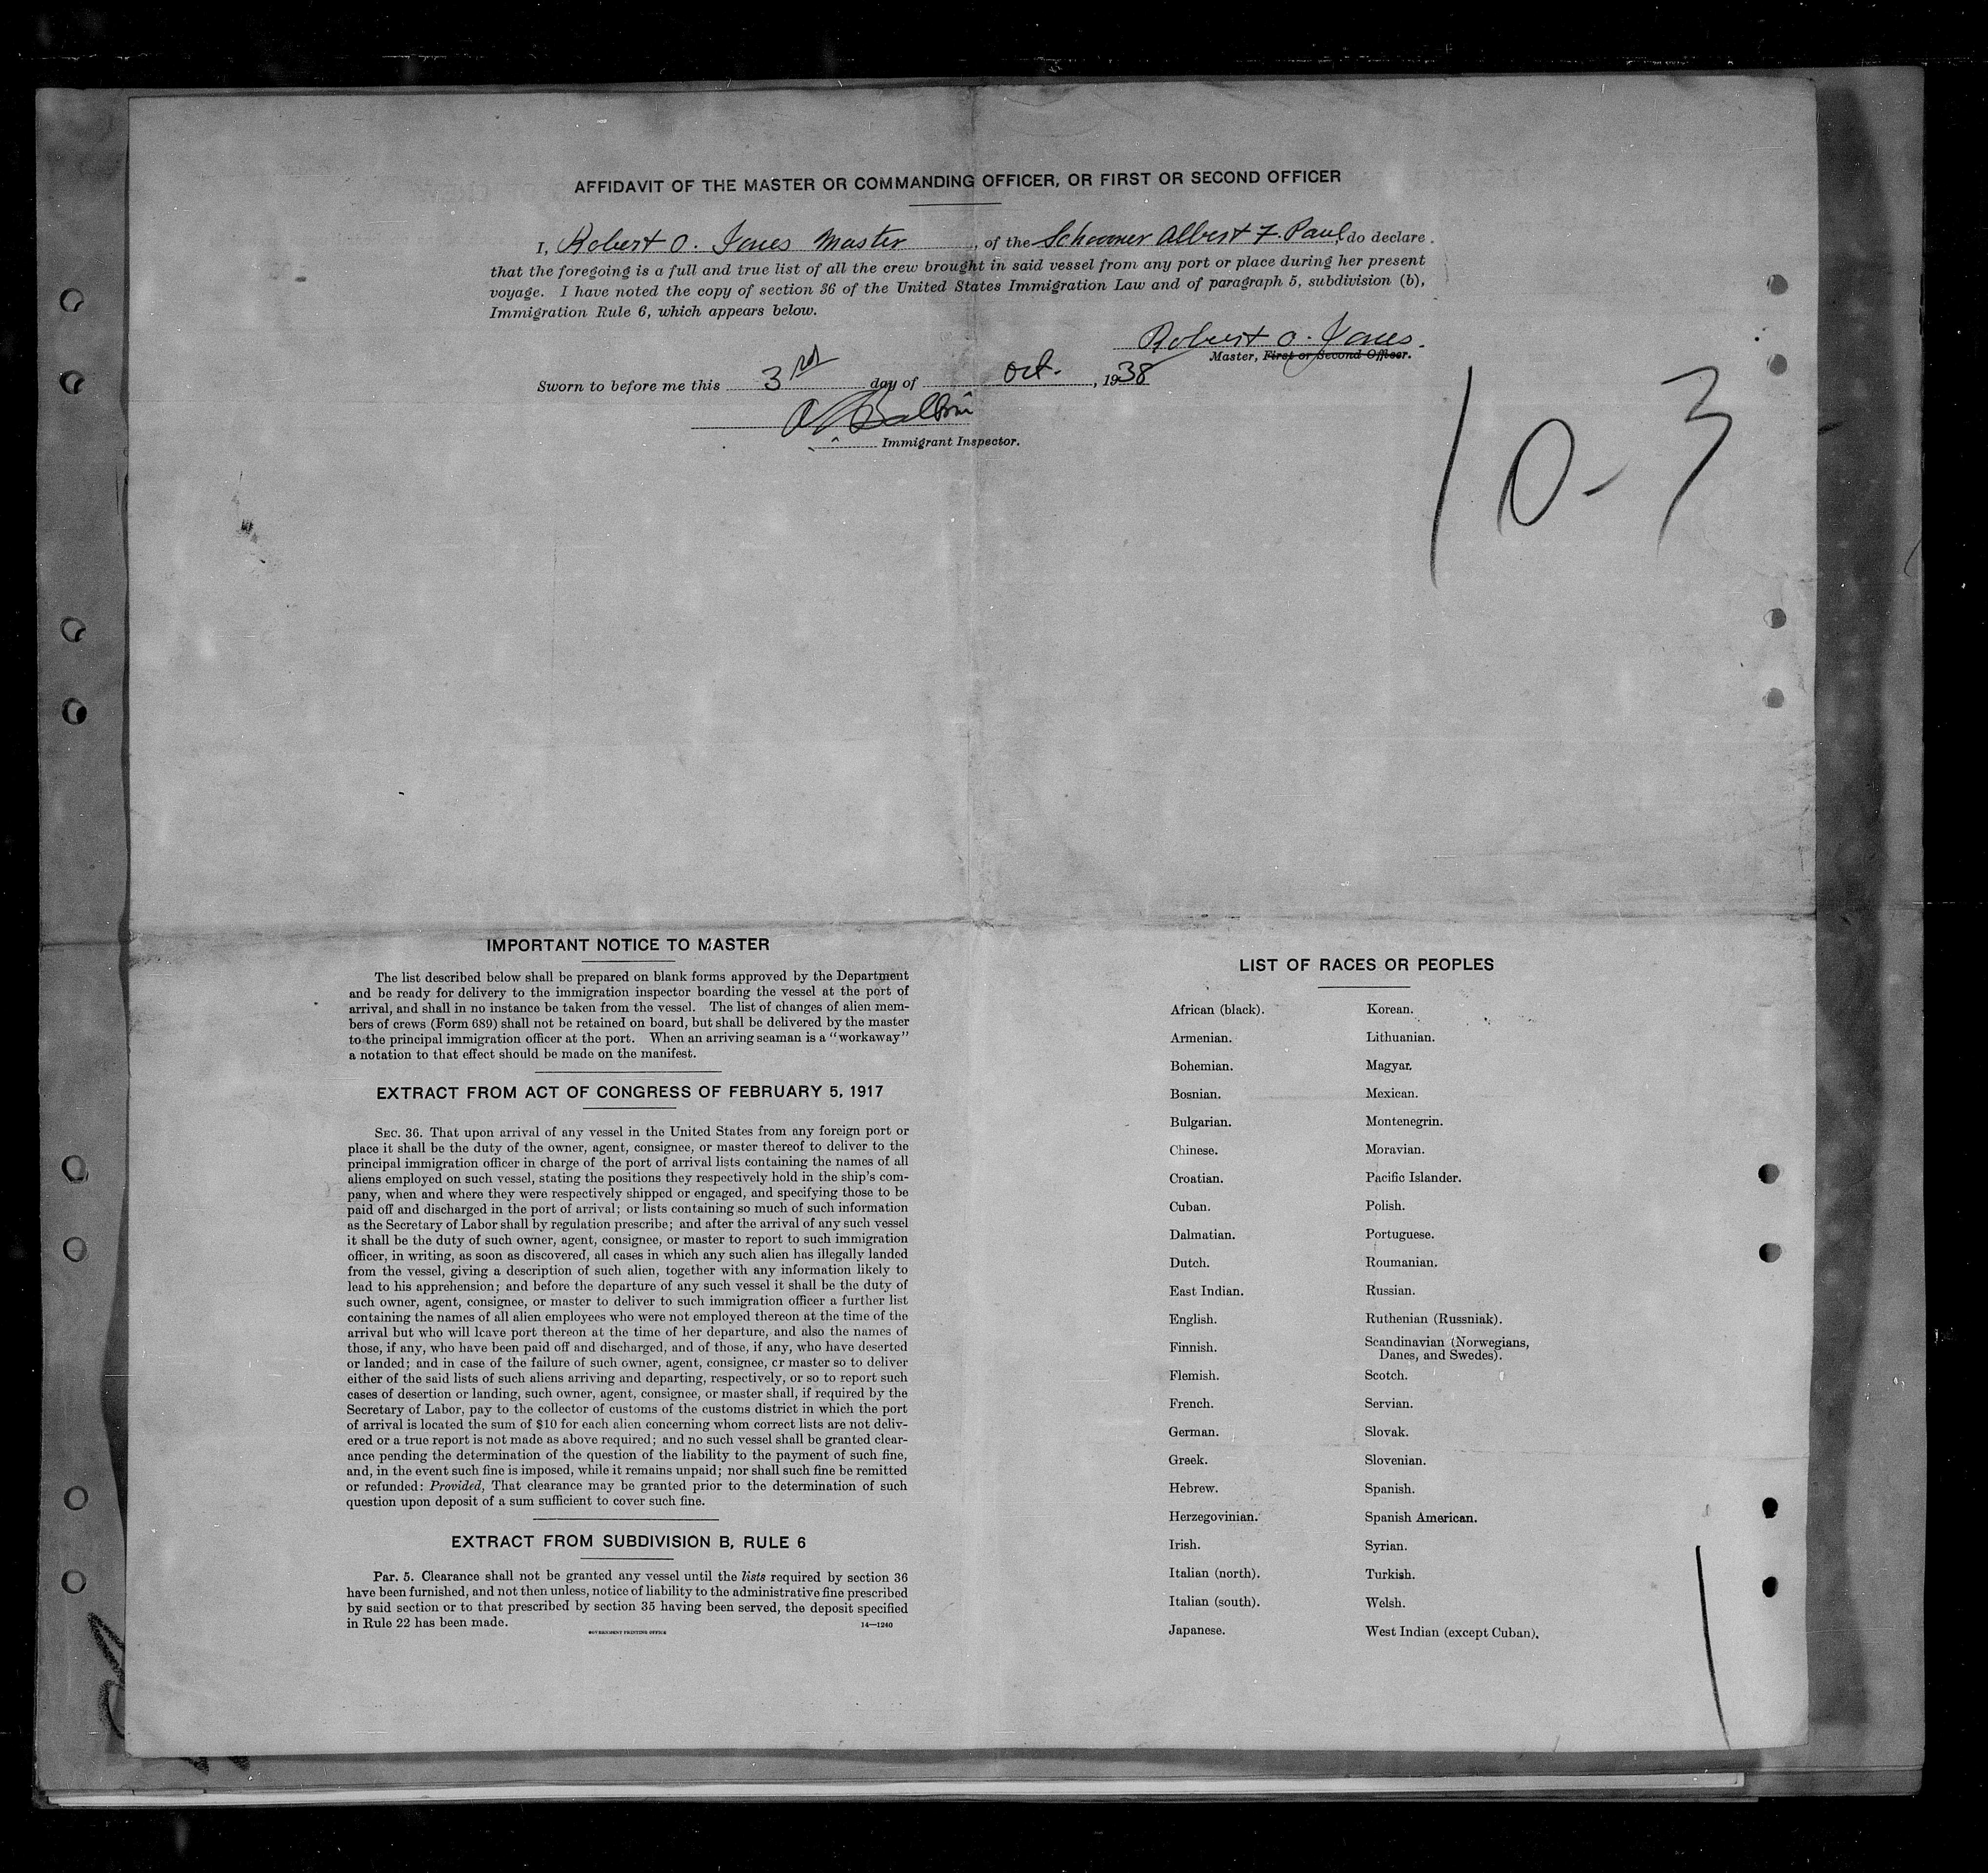 AFFIDAVIT OF THE MASTER OR COMMANDING OFFICER, OR FIRST OR SECOND OFFICER
I, Robert O. Jones Master, of the Schooner Albert F. Paul, do declare
that the foregoing is a full and true list of all the crew brought in said vessel from any port or place during her present
voyage. I have noted the copy of section 36 of the United States Immigration Law and of paragraph 5, subdivision (b),
Immigration Rule 6, which appears below.
Robert O. Jones.
Master, First or Second Officer.
Sworn to before me this 3rd day of Oct., 1938
Immigrant Inspector.
10-3
IMPORTANT NOTICE TO MASTER
The list described below shall be prepared on blank forms approved by the Department
and be ready for delivery to the immigration inspector boarding the vessel at the port of
arrival, and shall in no instance be taken from the vessel. The list of changes of alien mem-
bers of crews (Form 689) shall not be retained on board, but shall be delivered by the master
to the principal immigration officer at the port. When an arriving seaman is a "workaway"
a notation to that effect should be made on the manifest.
EXTRACT FROM ACT OF CONGRESS OF FEBRUARY 5, 1917
SEC. 36. That upon arrival of any vessel in the United States from any foreign port or
place it shall be the duty of the owner, agent, consignee, or master thereof to deliver to the
principal immigration officer in charge of the port of arrival lists containing the names of all
aliens employed on such vessel, stating the positions they respectively hold in the ship's com-
pany, when and where they were respectively shipped or engaged, and specifying those to be
paid off and discharged in the port of arrival; or lists containing so much of such information
as the Secretary of Labor shall by regulation prescribe; and after the arrival of any such vessel
it shall be the duty of such owner, agent, consignee, or master to report to such immigration
officer, in writing, as soon as discovered, all cases in which any such alien has illegally landed
from the vessel, giving a description of such alien, together with any information likely to
lead to his apprehension; and before the departure of any such vessel it shall be the duty of
such owner, agent, consignee, or master to deliver to such immigration officer a further list
containing the names of all alien employees who were not employed thereon at the time of the
arrival but who will leave port thereon at the time of her departure, and also the names of
those, if any, who have been paid off and discharged, and of those, if any, who have deserted
or landed; and in case of the failure of such owner, agent, consignee, or master so to deliver
either of the said lists of such aliens arriving and departing, respectively, or so to report such
cases of desertion or landing, such owner, agent, consignee, or master shall, if required by the
Secretary of Labor, pay to the collector of customs of the customs district in which the port
of arrival is located the sum of $10 for each alien concerning whom correct lists are not deliv-
ered or a true report is not made as above required; and no such vessel shall be granted clear-
ance pending the determination of the question of the liability to the payment of such fine,
and, in the event such fine is imposed, while it remains unpaid; nor shall such fine be remitted
or refunded: Provided, That clearance may be granted prior to the determination of such
question upon deposit of a sum sufficient to cover such fine.
EXTRACT FROM SUBDIVISION B, RULE 6
Par. 5. Clearance shall not be granted any vessel until the lists required by section 36
have been furnished, and not then unless, notice of liability to the administrative fine prescribed
by said section or to that prescribed by section 35 having been served, the deposit specified
in Rule 22 has been made.
GOVERNMENT PRINTING OFFICE 14—1240
LIST OF RACES OR PEOPLES
African (black).
Armenian.
Bohemian.
Bosnian.
Bulgarian.
Chinese.
Croatian.
Cuban.
Dalmatian.
Dutch.
East Indian.
English.
Finnish.
Flemish.
French.
German.
Greek.
Hebrew.
Herzegovinian.
Irish.
Italian (north).
Italian (south).
Japanese.
Korean.
Lithuanian.
Magyar.
Mexican.
Montenegrin.
Moravian.
Pacific Islander.
Polish.
Portuguese.
Roumanian.
Russian.
Ruthenian (Russniak).
Scandinavian (Norwegians,
Danes, and Swedes).
Scotch.
Servian.
Slovak.
Slovenian.
Spanish.
Spanish American.
Syrian.
Turkish.
Welsh.
West Indian (except Cuban).